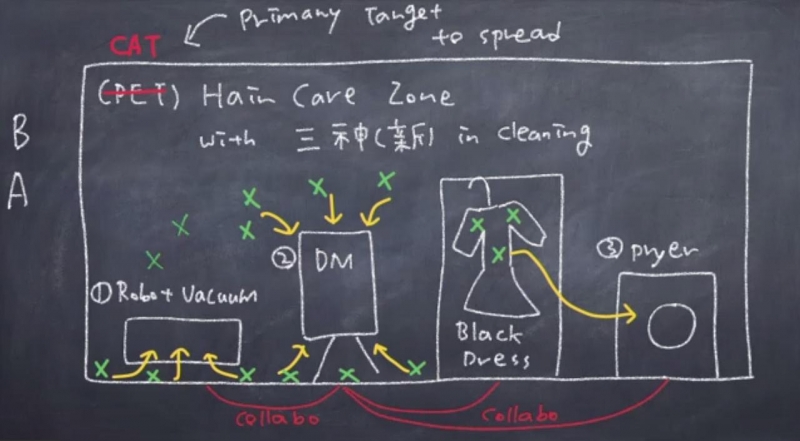 Primary Target
to spread
CAT
(PET) Hair Care Zone
with 三神(新) in cleaning
B
A
① Robot Vacuum
② DM
③ Dryer
Black
Dress
collabo
collabo